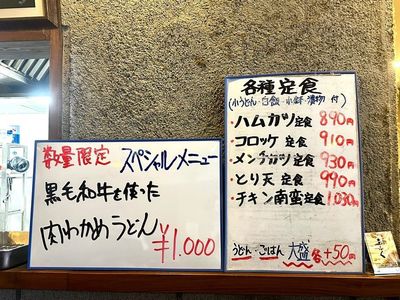 数量限定 スペシャルメニュー
黒毛和牛を使った
肉わかめうどん
¥1.000
各種定食
(小うどん・白飯・小鉢・漬物 付)
・ハムカツ定食 890円
・コロッケ 定食 910円
・メンチカツ定食 930円
・とり天 定食 990円
・チキン南蛮定食 1.030円
うどん・ごはん 大盛 各+50円